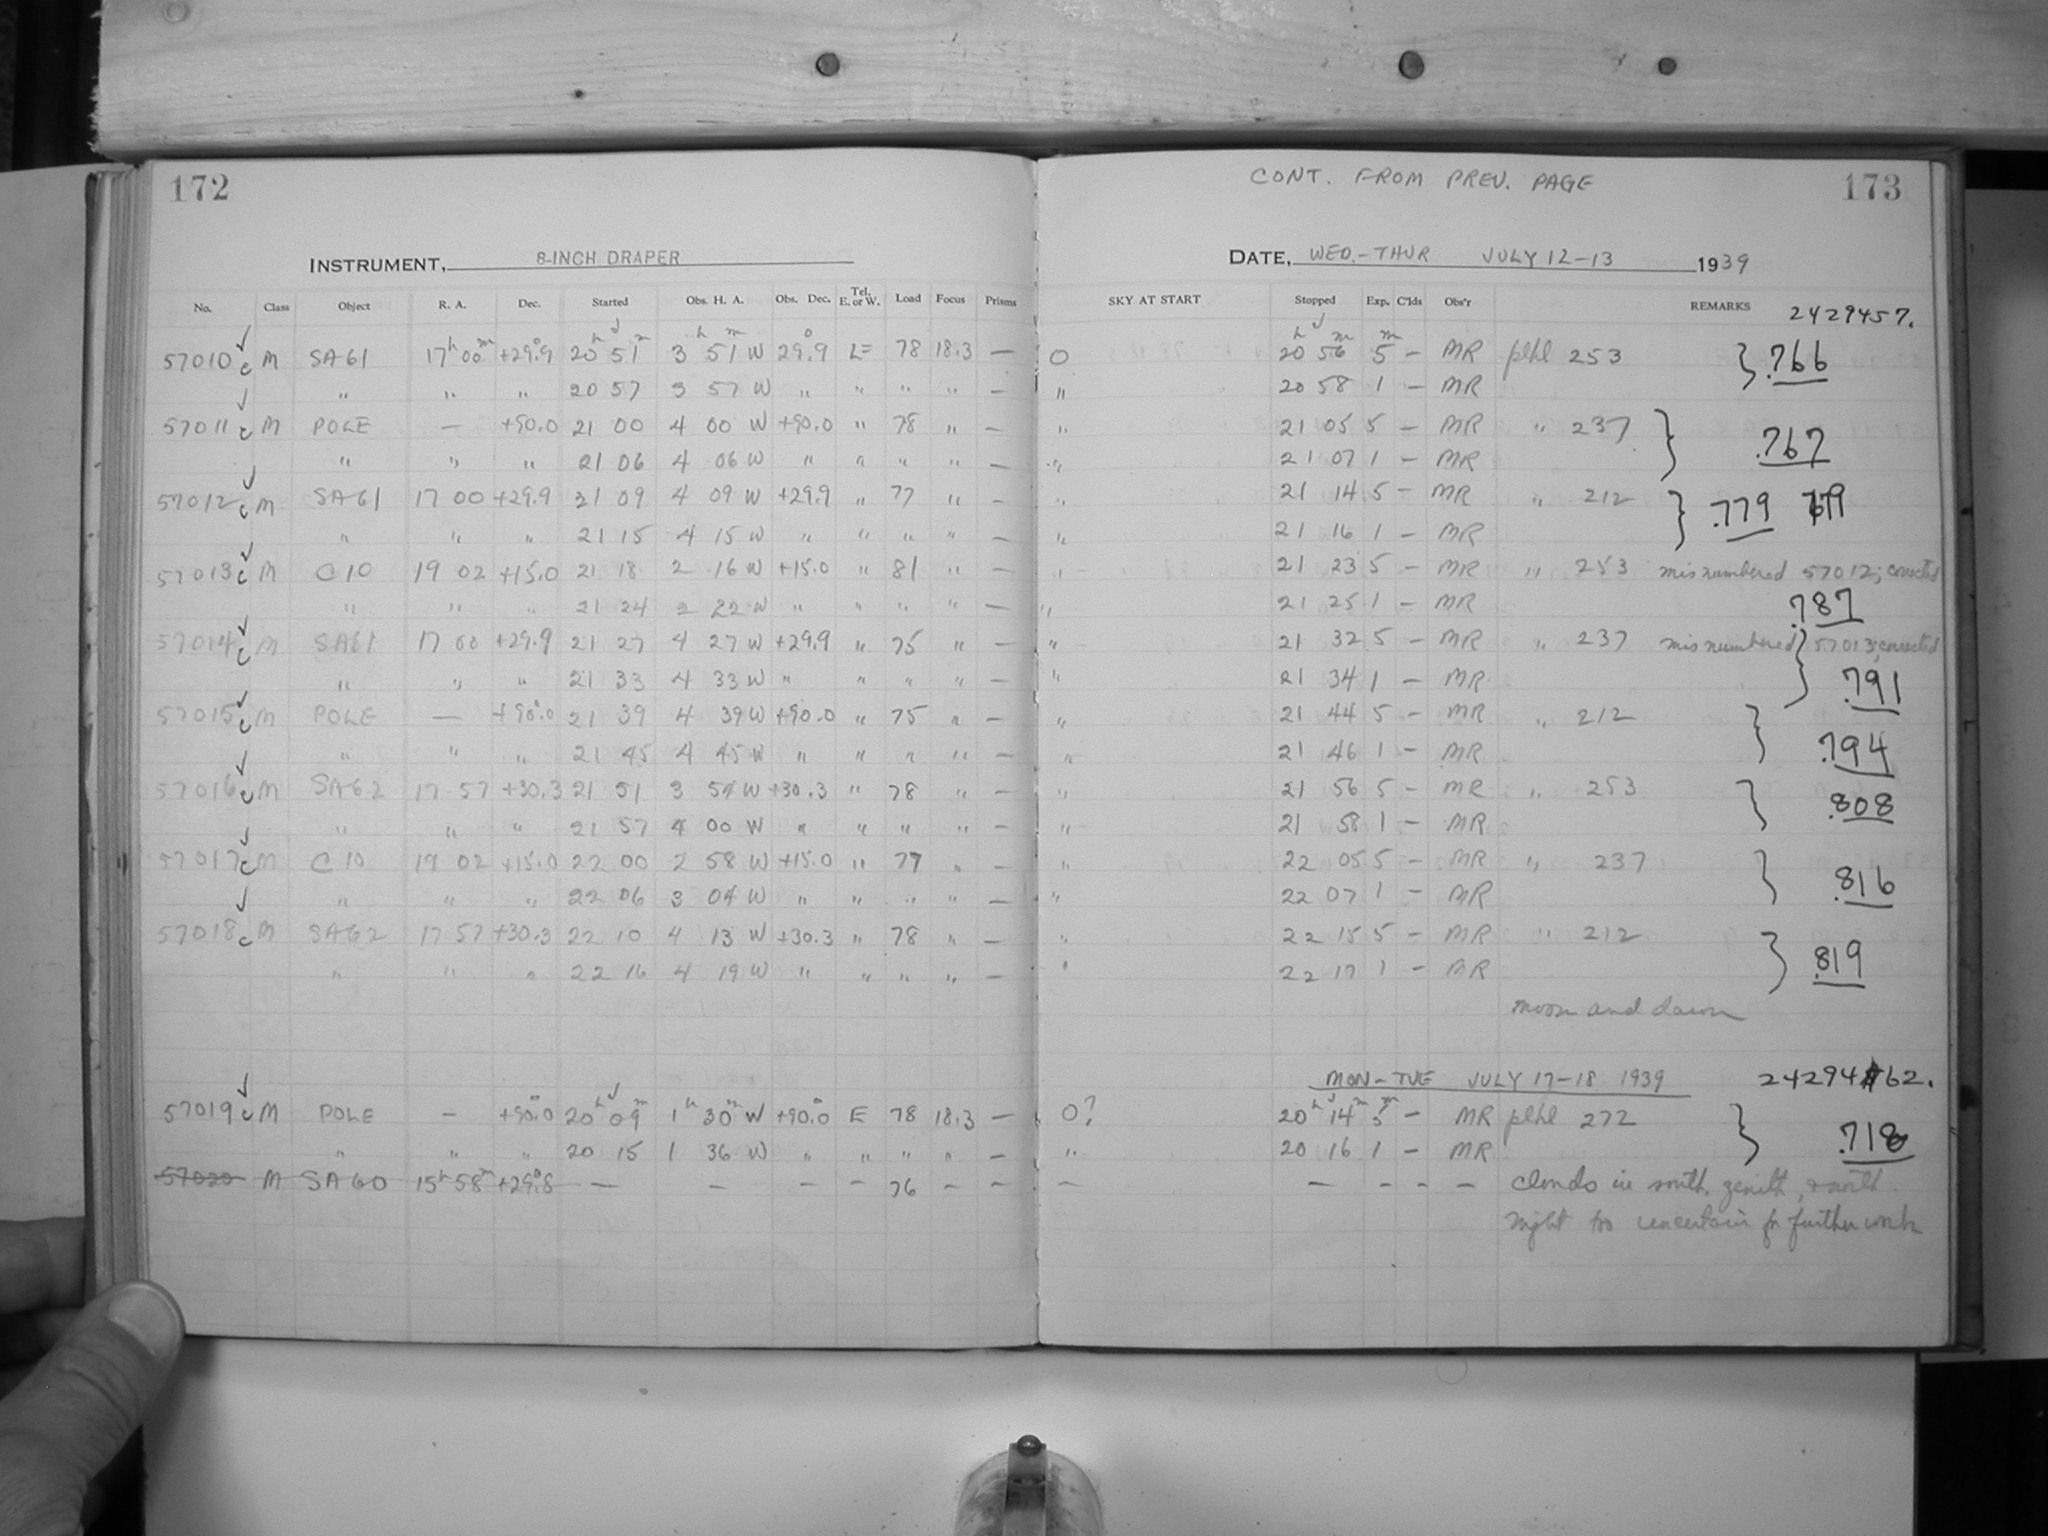 172
INSTRUMENT, 8-INCH DRAPER
No. Class Object R. A. Dec. Started Obs. H. A. Obs. Dec. Tel. E. or W. Load Focus Prisms
57010 c M SA61 17h 00m +29.°9 20h 51m 3h 51m W 29.°9 E 78 18.3 —
" " " 20 57 3 57 W " " " " —
57011 c M POLE — +90.0 21 00 4 00 W +90.0 " 78 " —
" " " 21 06 4 06 W " " " " —
57012 c M SA61 17 00 +29.9 21 09 4 09 W +29.9 " 77 " —
" " " 21 15 4 15 W " " " " —
57013 c M C10 19 02 +15.0 21 18 2 16 W +15.0 " 81 " —
" " " 21 24 2 22 W " " " " —
57014 c M SA61 17 00 +29.9 21 27 4 27 W +29.9 " 75 " —
" " " 21 33 4 33 W " " " " —
57015 c M POLE — +90.°0 21 39 4 39 W +90.0 " 75 " —
" " " 21 45 4 45 W " " " " —
57016 c M SA62 17 57 +30.3 21 51 3 54 W +30.3 " 78 " —
" " " 21 57 4 00 W " " " " —
57017 c M C10 19 02 +15.0 22 00 2 58 W +15.0 " 77 " —
" " " 22 06 3 04 W " " " " —
57018 c M SA62 17 57 +30.3 22 10 4 13 W +30.3 " 78 " —
" " " 22 16 4 19 W " " " " —
57019 c M POLE — +90.°0 20h 09m 1h 30m W +90.°0 E 78 18.3 —
" " " 20 15 1 36 W " " " " —
57020 M SA60 15h 58m +29.°8 — — — — 76 — —
CONT. FROM PREV. PAGE 173
DATE, WED.-THUR JULY 12-13 1939
SKY AT START Stopped Exp. C'lds Obs'r REMARKS 2429457.
0 20h 56m 5m — MR plhl 253 } .766
" 20 58 1 — MR
" 21 05 5 — MR " 237 } .767
" 21 07 1 — MR
" 21 14 5 — MR " 212 } .779
" 21 16 1 — MR
" 21 23 5 — MR " 253 misnumbered 57012; corrected
" 21 25 1 — MR .787
" 21 32 5 — MR " 237 misnumbered 57013; corrected
" 21 34 1 — MR } .791
" 21 44 5 — MR " 212 } .794
" 21 46 1 — MR
" 21 56 5 — MR " 253 } .808
" 21 58 1 — MR
" 22 05 5 — MR " 237 } .816
" 22 07 1 — MR
" 22 15 5 — MR " 212 } .819
" 22 17 1 — MR
moon and dawn
MON-TUE JULY 17-18 1939 2429462.
0? 20h 14m 5m — MR plhl 272 } .718
" 20 16 1 — MR
— — — — — clouds in south, zenith, & north.
night too uncertain for further work